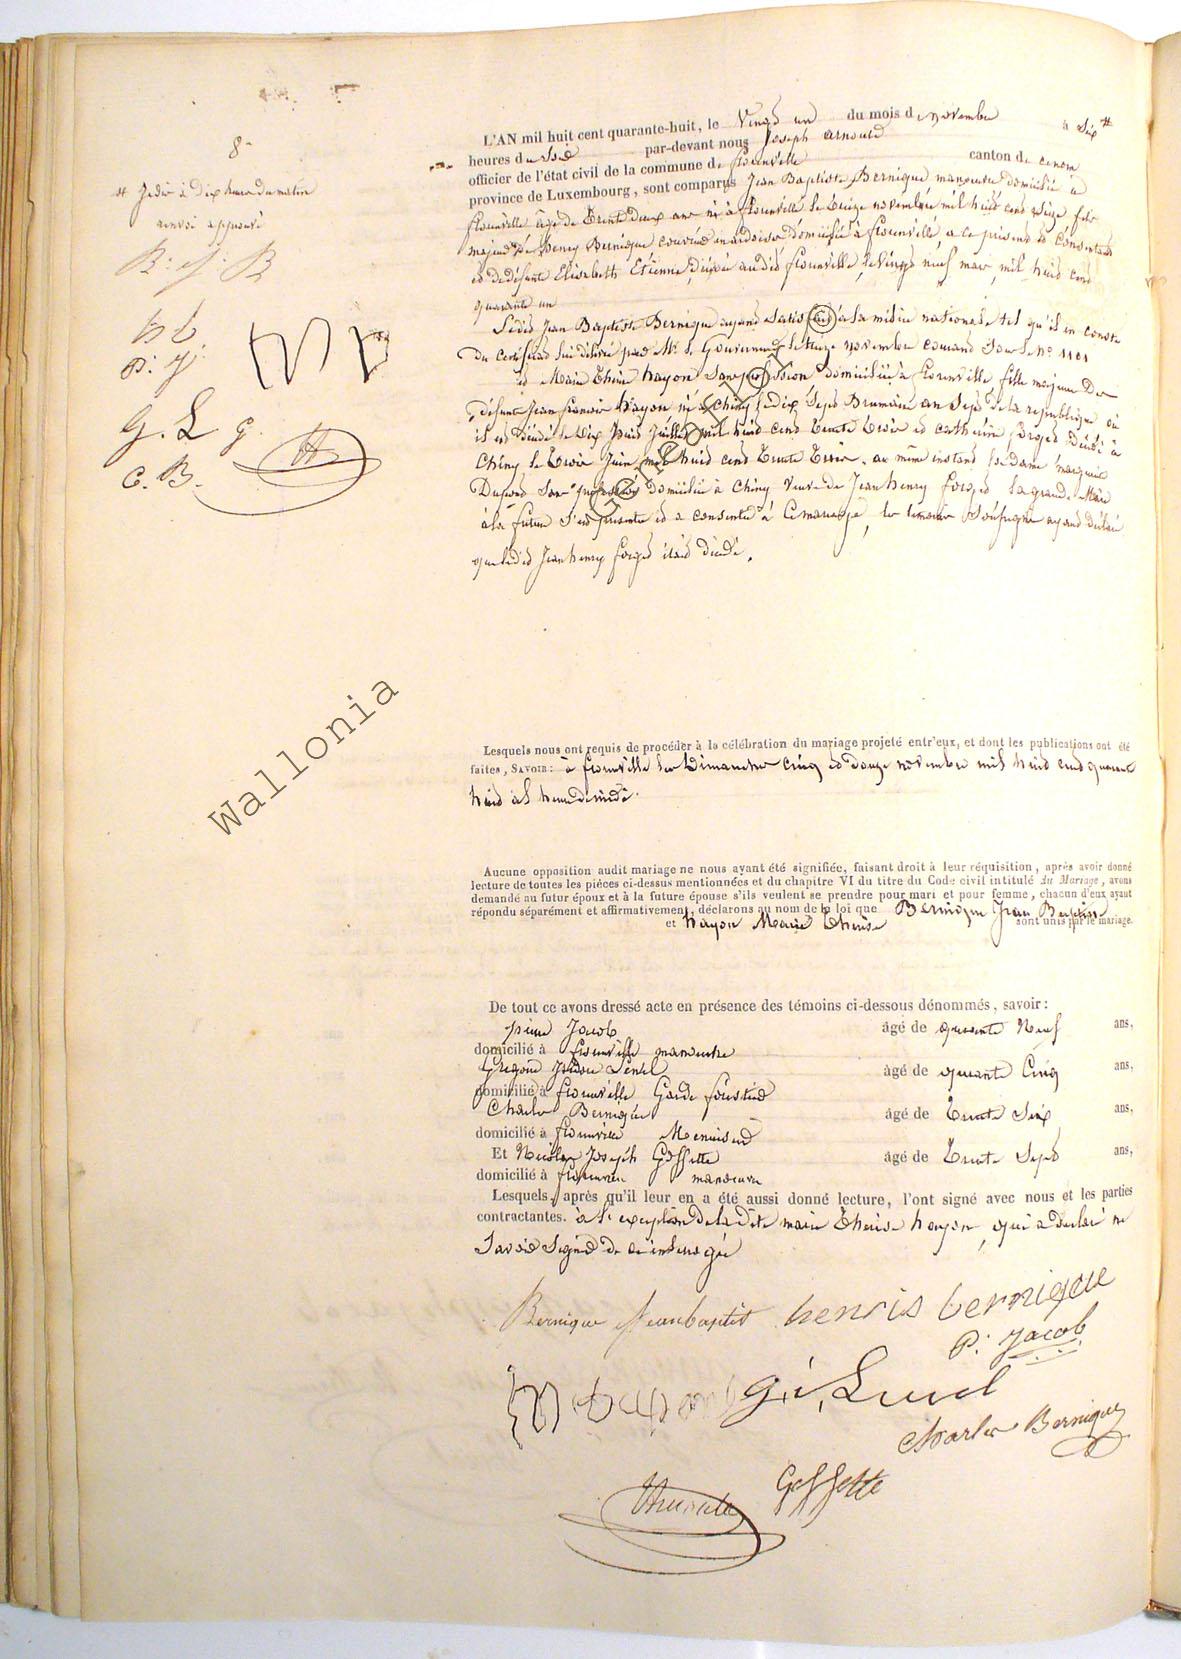 8
L'AN mil huit cent quarante-huit, le Vingt un du mois de novembre à Six #
heures du Soir par-devant nous Joseph Arnould
officier de l'état civil de la commune de florenville canton de ce nom
province de Luxembourg, sont comparus Jean Baptiste Bernique manœuvre domicilié à
florenville âgé de Trente deux ans né à florenville le treize novembre mil huit cent Seize fils
majeur de Henry Bernique couvreur en ardoises domicilié à florenville, a ce présent et consentant
et de défunte Elisabeth Etienne, décédée audit florenville, le vingt neuf mars, mil huit cent
quarante un
Ledit Jean Baptiste Bernique ayant Satisfait à la milice nationale tel qu'il en conste
du Certificat lui délivré par Mr le Gouverneur le treize novembre courant Sous le No 1101
et Marie Thérèse hayon Sans profession domiciliée à florenville, fille majeure de
défunt Jean françois hayon né à Chiny le dix Sept Brumaire an Sept de la république où
il est décédé le Dix huit Juillet mil huit cent Trente Trois et catherine forget décédée à
Chiny le Trois Juin mil huit cent Trente Trois. au même instant
Sans profession domiciliée à Chiny veuve de Jean henry forget la grande Mère
à la future S'est présentée et a consenti à ce mariage, les témoins Soussignés ayant déclaré
que ledit Jean henry forget était décédé.
# Jeudi à dix heures du matin
renvoi approuvé
B. J. B
h b.
P. J.
G. L g.
C. B.
Wallonia
Lesquels nous ont requis de procéder à la célébration du mariage projeté entr'eux, et dont les publications ont été
faites, SAVOIR: à florenville les Dimanches cinq et douze novembre mil huit cent quarante
huit à l'heure de midi.
Aucune opposition audit mariage ne nous ayant été signifiée, faisant droit à leur réquisition, après avoir donné
lecture de toutes les pièces ci-dessus mentionnées et du chapitre VI du titre du Code civil intitulé du Mariage, avons
demandé au futur époux et à la future épouse s'ils veulent se prendre pour mari et pour femme, chacun d'eux ayant
répondu séparément et affirmativement, déclarons au nom de la loi que Bernique Jean Baptiste
et hayon Marie Thérèse sont unis par le mariage.
De tout ce avons dressé acte en présence des témoins ci-dessous dénommés, savoir:
pierre Jacob âgé de quarante Neuf ans,
domicilié à florenville manœuvre
Gregoire Lenel âgé de quarante Cinq ans,
domicilié à florenville Garde forestier
Charles Bernique âgé de Trente Six ans,
domicilié à florenville Menuisier
Et Nicolas Joseph Goffette âgé de Trente Sept ans,
domicilié à florenville manœuvre
Lesquels, après qu'il leur en a été aussi donné lecture, l'ont signé avec nous et les parties
contractantes. à l'exception de la dite marie Thérèse hayon, qui a déclaré ne
Savoir Signer de ce interrogée
Bernique Jeanbaptiste henris bernique
P. Jacob
Charles Bernique
Goffette
Arnould